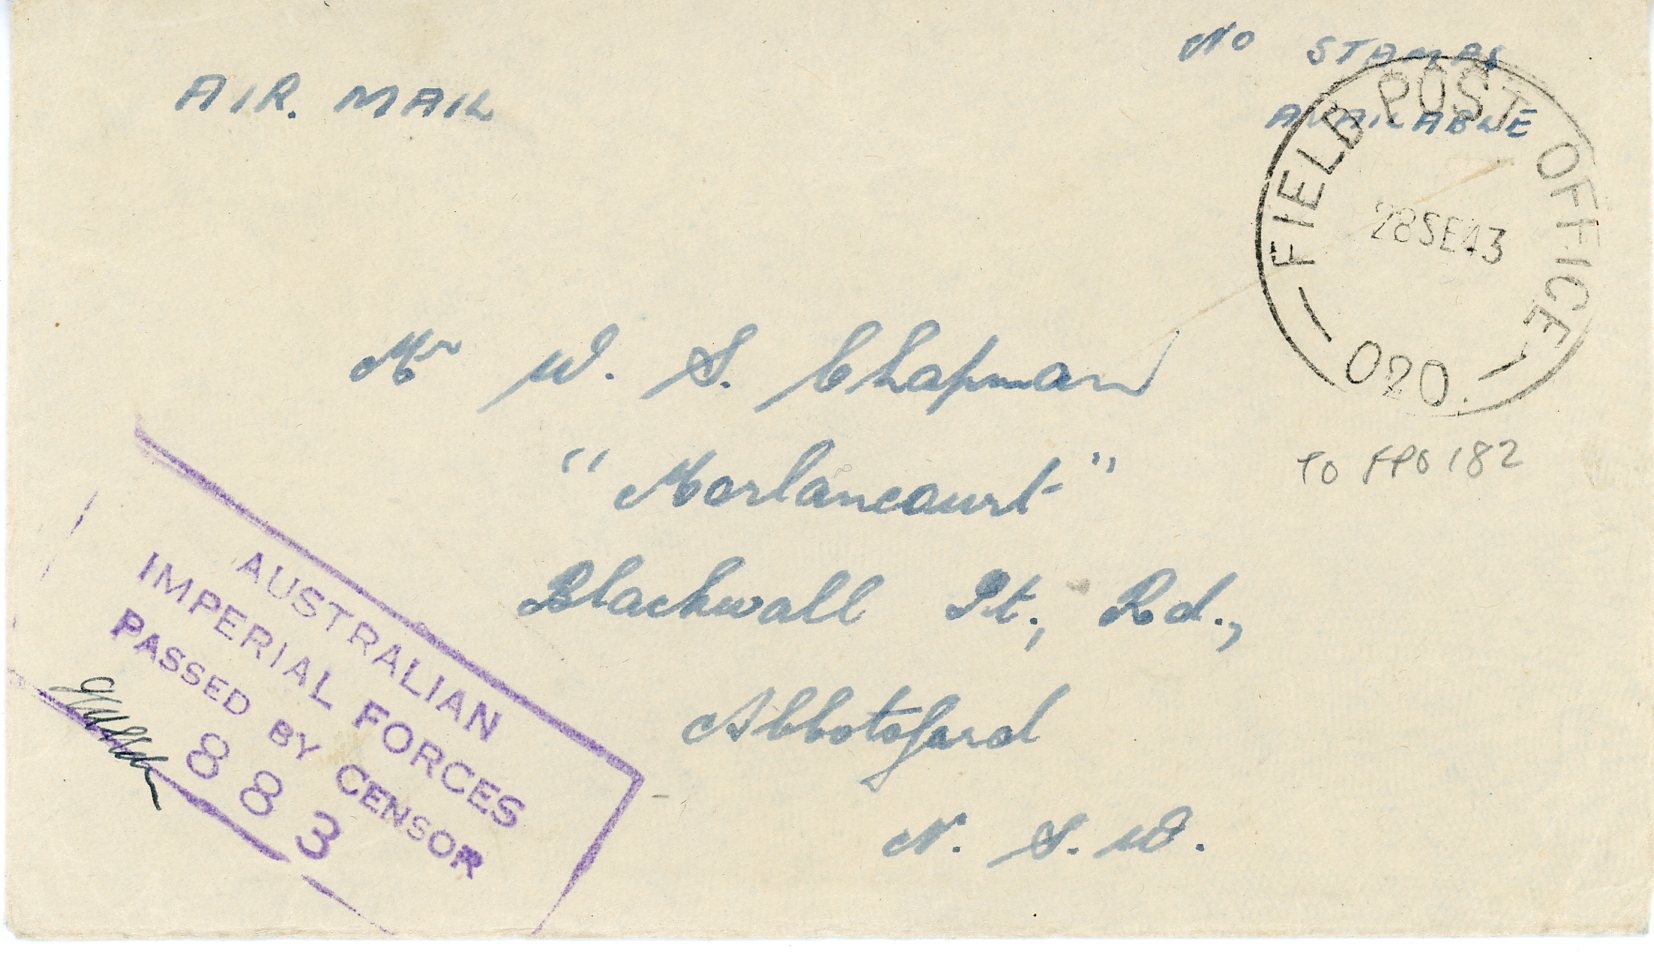 AIR. MAIL
No STAMPS
AVAILABLE
FIELD POST OFFICE
28SE43
020.
TO FPO 182
Mr W. S. Chapman
"Morlancourt"
Blackwall Pt., Rd.,
Abbotsford
N. S. W.
AUSTRALIAN
IMPERIAL FORCES
PASSED BY CENSOR
883